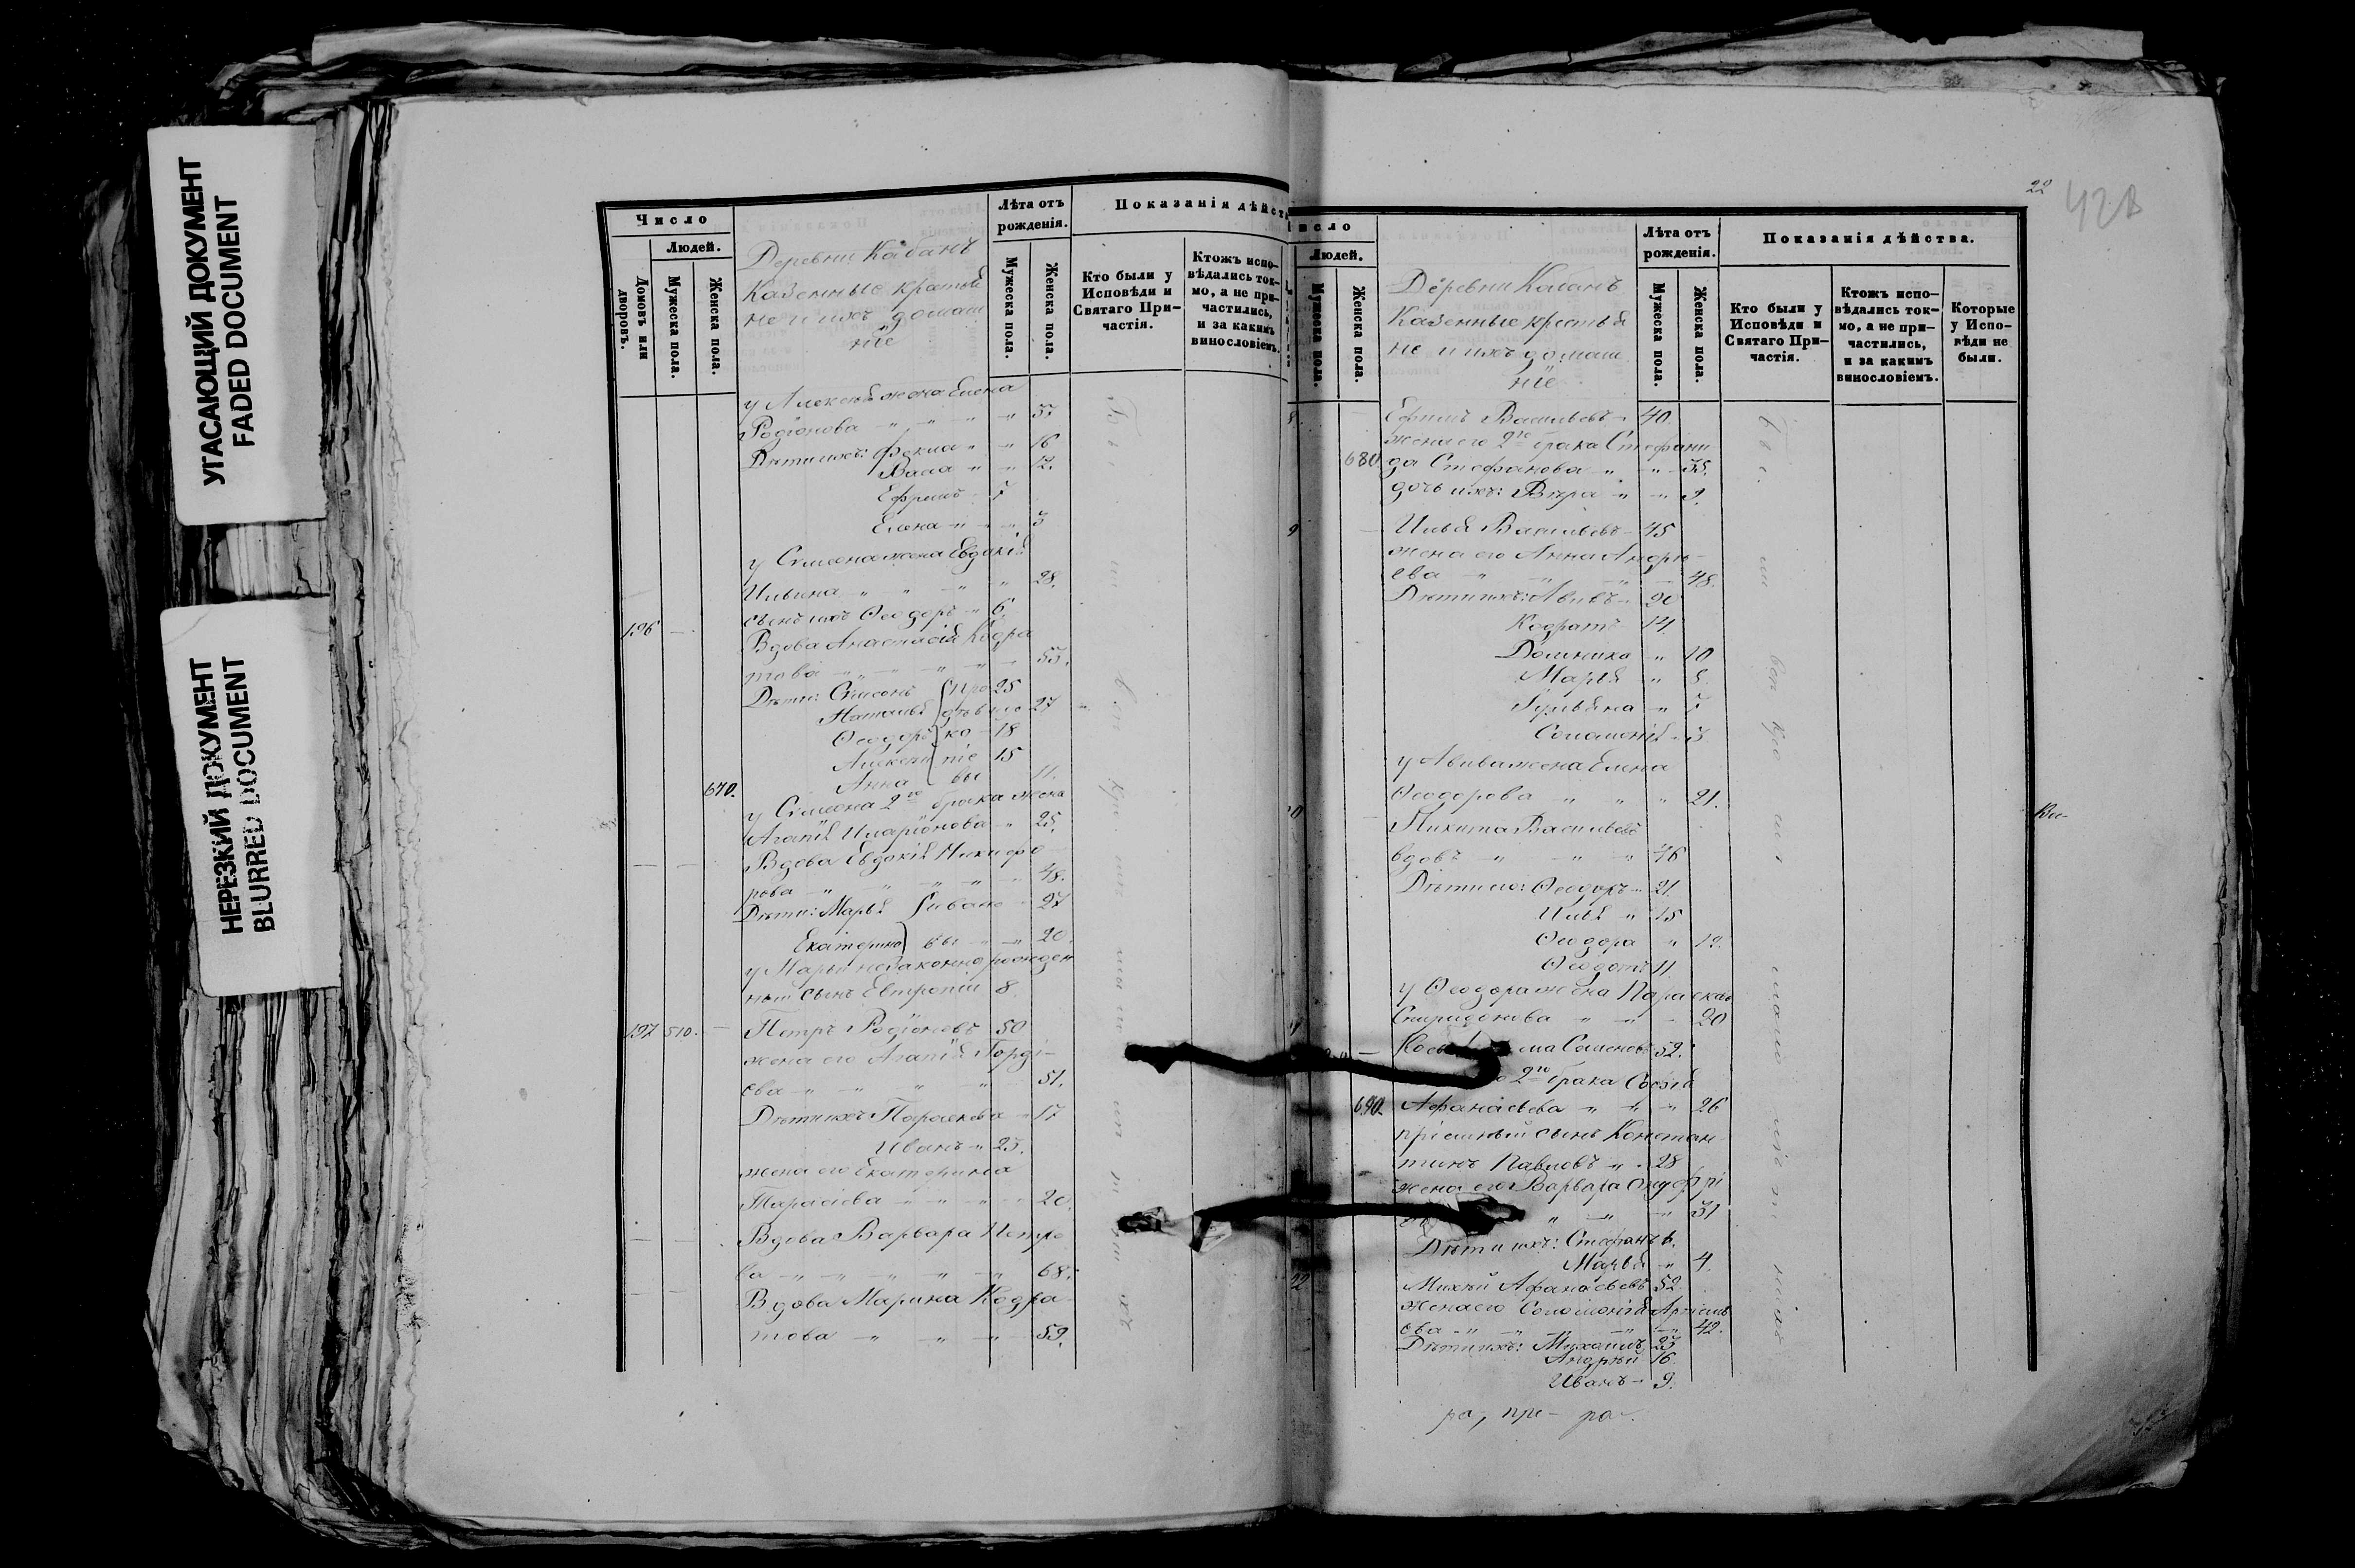 УГАСАЮЩИЙ ДОКУМЕНТ
FADED DOCUMENT
НЕРЕЗКИЙ ДОКУМЕНТ
BLURRED DOCUMENT
Число
Людей.
Домовъ или дворовъ.
Мужеска пола.
Женска пола.
Деревни Кабанъ
Казенные крестья
не и ихъ домаш
ніе
Лѣта отъ рожденія.
Мужеска пола.
Женска пола.
Показанія дѣйст
Кто были у Исповѣди и Святаго При-частія.
Ктожъ испо-вѣдались ток-мо, а не при-частились, и за какимъ винословіемъ.
у Алексѣя жена Елена
Родіонова
Дѣти ихъ: Фекла 16
Васа 12.
Ефремъ
Елена 3
у Симеона жена Евдокія
Ильина 28.
сынъ ихъ Ѳеодоръ 6.
196 Вдова Анастасія Кодра
това 55.
Дѣти: Симеонъ 25
Наталья 27
Ѳеодоръ 18
Алексѣй 15
670. Анна 11.
у Симеона 2го брака жена
Агапія Иларіонова 25.
Вдова Евдокія Никифо
рова 48.
Дѣти: Марья Ивано 27
Екатерина вы 20.
у Марьи незаконнорожден
ный сынъ Евтропій 8
197 510. Петръ Родіоновъ 50
жена его Агапія Горді-
ева 51.
Дѣти ихъ Параскева 17
Иванъ 23.
жена его Екатерина
Тарасіева 20.
Вдова Варвара Петро
ва 68.
Вдова Марина Кодра
това 59.
22
42в
исло
Людей.
Мужеска пола.
Женска пола.
Деревни Кабанъ
Казенные крестья
не и ихъ домаш
ніе
Лѣта отъ рожденія.
Мужеска пола.
Женска пола.
Показанія дѣйства.
Кто были у Исповѣди и Святаго При-частія.
Ктожъ испо-вѣдались ток-мо, а не при-частились, и за какимъ винословіемъ.
Которые у Испо-вѣди не были.
Ефремъ Васильевъ 40.
жена его 2го брака Стефани
680. да Стефанова 35.
дочь ихъ: Вѣра 9.
Илья Васильевъ 45
жена его Анна Андре-
ева 48.
Дѣти ихъ: Авивъ 20
Кодратъ 14.
Домника 10
Марья 8.
Іульяна
Соломонія 3
у Авива жена Елена
Ѳеодорова 21.
Никита Васильевъ
вдовъ 46
Дѣти его: Ѳеодоръ 21.
Илья 15
Ѳеодора 12.
Ѳеодотъ 11
у Ѳеодора жена Параскева
Спиридонова 20
ма Семеновъ 52.
2го брака Софія
690. Афанасьева 26
пріемный сынъ Констан
тинъ Павловъ 28
жена его Варвара Онуфрі
31
Дѣти ихъ: Стефанъ 6.
Марья 4.
Михей Афанасьевъ 52.
жена его Соломонія Артемь
ева 42.
Дѣти ихъ: Михаилъ 23
Андрей 16.
Иванъ 9.
ра, пре- ра-.